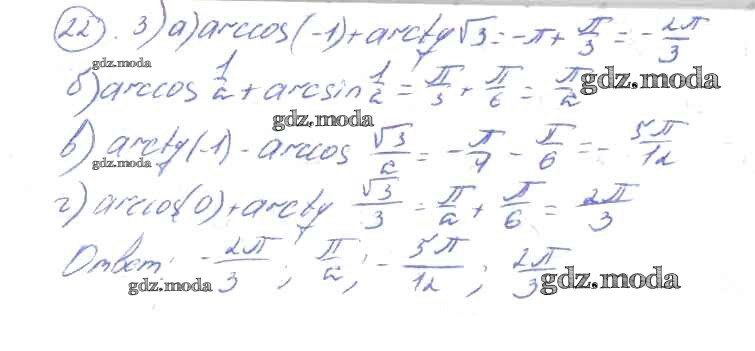 22). 3) а) arccos(-1) + arctg √3 = -π + π/3 = -2π/3
gdz.moda
б) arccos 1/2 + arcsin 1/2 = π/3 + π/6 = π/2
gdz.moda
gdz.moda
в) arctg(-1) - arccos √3/2 = -π/4 - π/6 = -5π/12
gdz.moda
г) arccos(0) + arctg √3/3 = π/2 + π/6 = 2π/3
Ответ: -2π/3; π/2; -5π/12; 2π/3
gdz.moda
gdz.moda